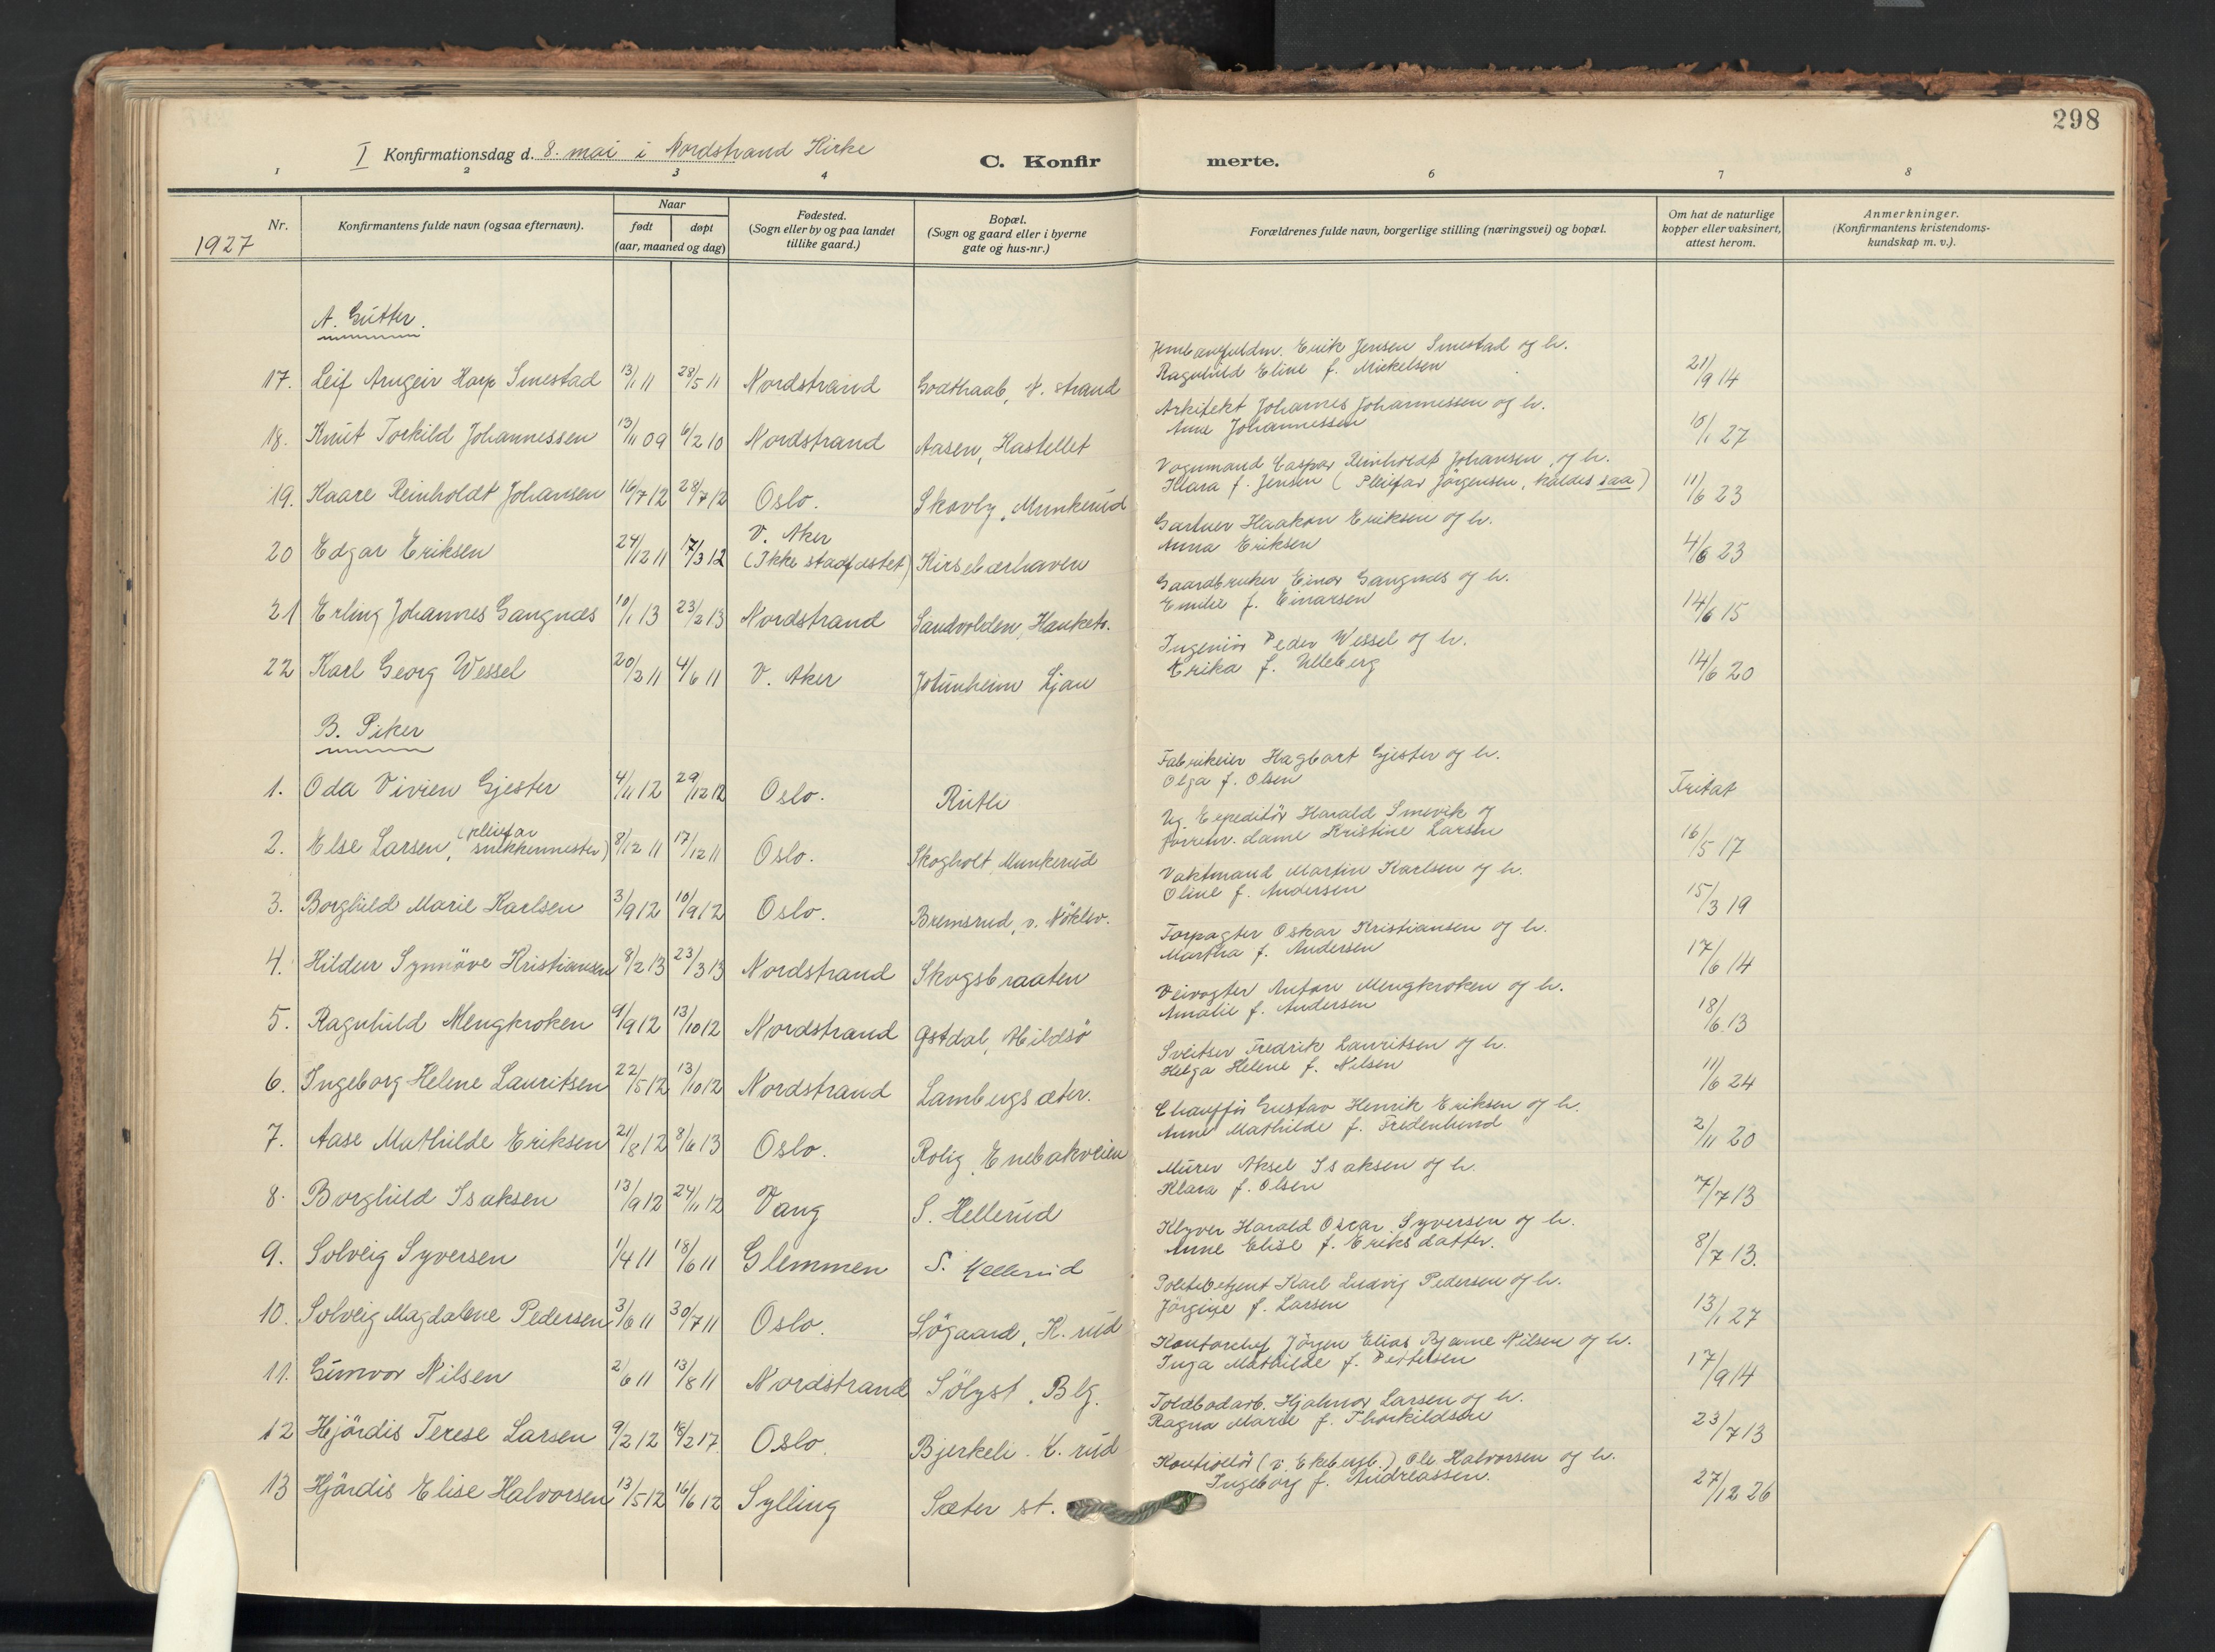 298
I Konfirmationsdag d. 8. mai i Nordstrand Kirke
C. Konfirmerte.
1 2 3 4 6 7 8
1927
Nr.
Konfirmantens fulde navn (ogsaa efternavn).
Naar
født døpt
(aar, maaned og dag)
Fødested.
(Sogn eller by og paa landet
tillike gaard.)
Bopæl.
(Sogn og gaard eller i byerne
gate og hus-nr.)
Forældrenes fulde navn, borgerlige stilling (næringsvei) og bopæl.
Om hat de naturlige
kopper eller vaksinert,
attest herom.
Anmerkninger.
(Konfirmantens kristendoms-
kundskap m. v.).
A. Gutter.
Erik Jensen Smestad og h.
Ragnhild Eline f. Mickelsen
17. Leif Arngeir Harp Smestad 13/1 11 28/5 11 Nordstrand Godthaab, N. strand 21/9 14
Arkitekt Johannes Johannessen og h.
Anne Johannessen
18. Knut Torkild Johannessen 13/11 09 6/2 10 Nordstrand Aasen, Kastellet 10/1 27
Vognmand Caspar Reinholdt Johansen og h.
Klara f. Jensen (Pleiefar Jörgensen, kaldes saa)
19. Kaare Reinholdt Johansen 16/7 12 28/7 12 Oslo. Skovly, Munkerud 11/6 23
Gartner Haakon Eriksen og h.
Anna Eriksen
20 Edgar Eriksen 24/12 11 17/3 12 V. Aker
(Ikke stadfestet) Kirsebærhaven 4/6 23
Gaardbruker Einar Gangnæs og h.
Emilie f. Einarsen
21 Erling Johannes Gangnæs 10/1 13 23/2 13 Nordstrand Sandvolden, Hauketo. 14/6 15
Ingeniör Peder Wessel og h.
Erika f. Ulleberg
22 Karl Georg Wessel 20/2 11 4/6 11 V. Aker Jotunheim Ljan 14/6 20
B. Piker
Fabrikeier Hagbart Gjester og h.
Olga f. Olsen
1. Oda Vivien Gjester 4/11 12 29/12 12 Oslo. Rütli Fritat
Ug. Expeditör Harald Smevik og
forretn. dame Kristine Larsen
2. Else Larsen, (pleiefar
snekkermester) 8/12 11 17/12 11 Oslo. Skogholt, Munkerud 16/5 17
Vaktmand Martin Karlsen og h.
Oline f. Andersen
3. Borghild Marie Karlsen 3/9 12 10/9 12 Oslo. Bremsrud, v. Nöklev. 15/3 19
Forpagter Oskar Kristiansen og h.
Martha f. Andersen
4. Hildur Synnöve Kristiansen 8/2 13 23/3 13 Nordstrand Skogsbraaten 17/6 14
Veivogter Anton Mengkroken og h.
Amalie f. Andersen
5. Ragnhild Mengkroken 9/9 12 13/10 12 Nordstrand Gstdal, Hildsö 18/6 13
Sveitser Fredrik Lauritsen og h.
Helga Helene f. Nilsen
6. Ingeborg Helene Lauritsen 22/5 12 13/10 12 Nordstrand Lambergsæter. 11/6 24
Chaufför Gustav Henrik Eriksen og h.
Anne Mathilde f. Fredenlund
7. Aase Mathilde Eriksen 21/8 12 8/6 13 Oslo. Rolig, Enebakveien 2/11 20
Murer Aksel Isaksen og h.
Klara f. Olsen
8. Borghild Isaksen 13/9 12 24/11 12 Vang S. Hellerud 7/7 13
Klyver Harald Oscar Syversen og h.
Anne Elise f. Eriksdatter.
9. Solveig Syversen 1/4 11 18/6 11 Glemmen S. Hellerud 8/7 13.
Politibetjent Karl Ludvig Pedersen og h.
Jörgine f. Larsen
10. Solveig Magdalene Pedersen 3/6 11 30/7 11 Oslo. Sögaard, K. rud 13/1 27
Kontorchef Jörgen Elias Bjarne Nilsen og h.
Inga Mathilde f. Pettersen
11. Gunvor Nilsen 2/6 11 13/8 11 Nordstrand Sölyst, Blg. 17/9 14
Toldbodarb. Hjalmar Larsen og h.
Ragna Marie f. Thorkildsen
12 Hjördis Terese Larsen 9/2 12 18/2 17 Oslo. Bjerkeli. K. rud 23/7 13
Kontrollör (v. Ekebergb.) Ole Halvorsen og h.
Ingeborg f. Andreassen.
13 Hjördis Elise Halvorsen 13/5 12 16/6 12 Sylling Sæter st. 27/12 26